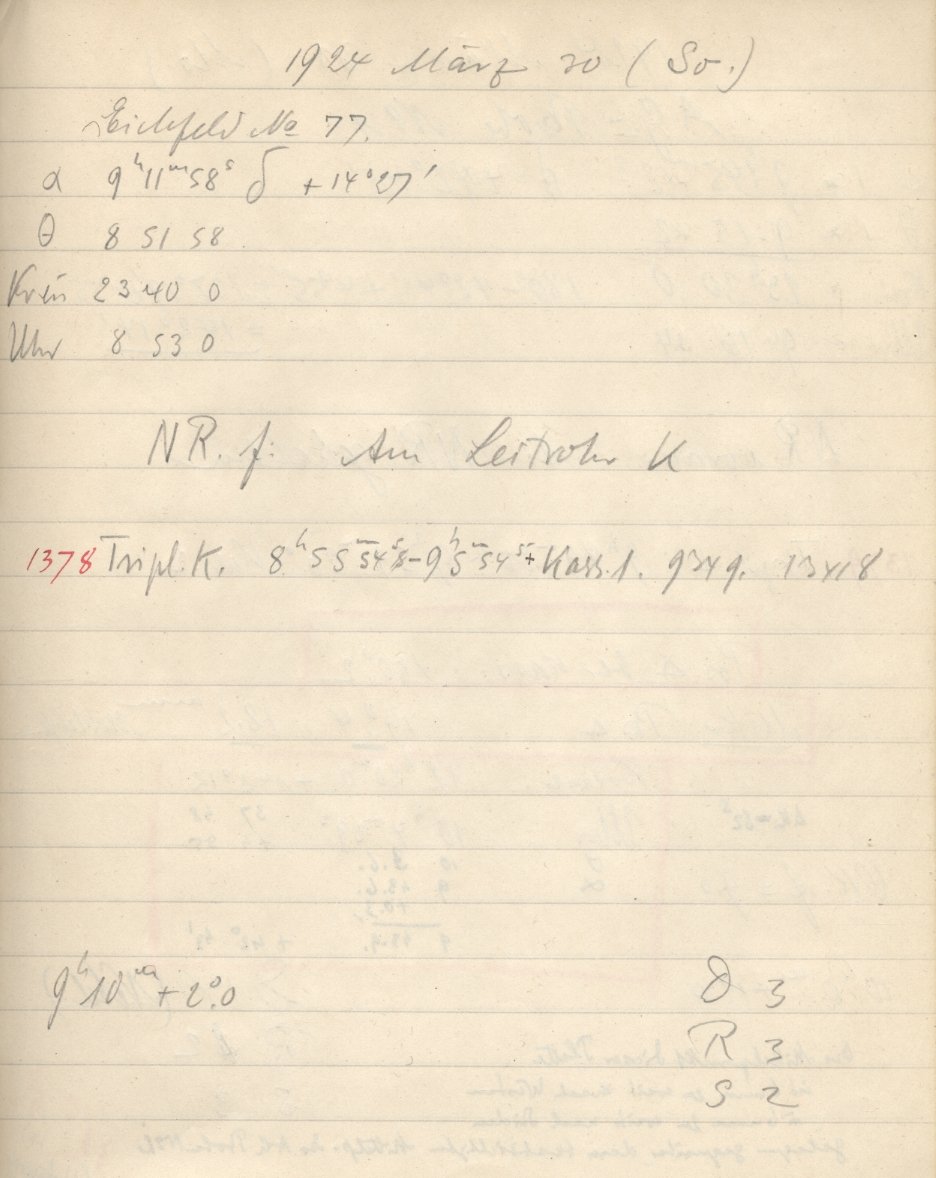 1924 März 30 (So.)
Eichfeld No 77.
α 9ʰ11ᵐ58ˢ δ +14°27'
θ 8 51 58
Kreis 23 40 0
Uhr 8 53 0
NR. f. Am Leitrohr K
1378 Tripl. K. 8ʰ55ᵐ54ˢ8–9ʰ5ᵐ54ˢ5+ Kass. 1. 9349. 13418
9ʰ10ᵐ +2°.0
D 3
R 3
S 2